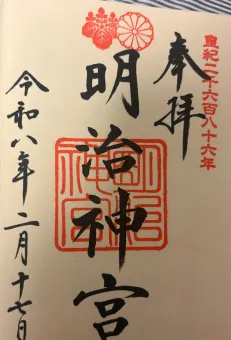 皇紀二千六百八十六年
奉拝
明治神宮
令和八年二月十七日
明治神宮